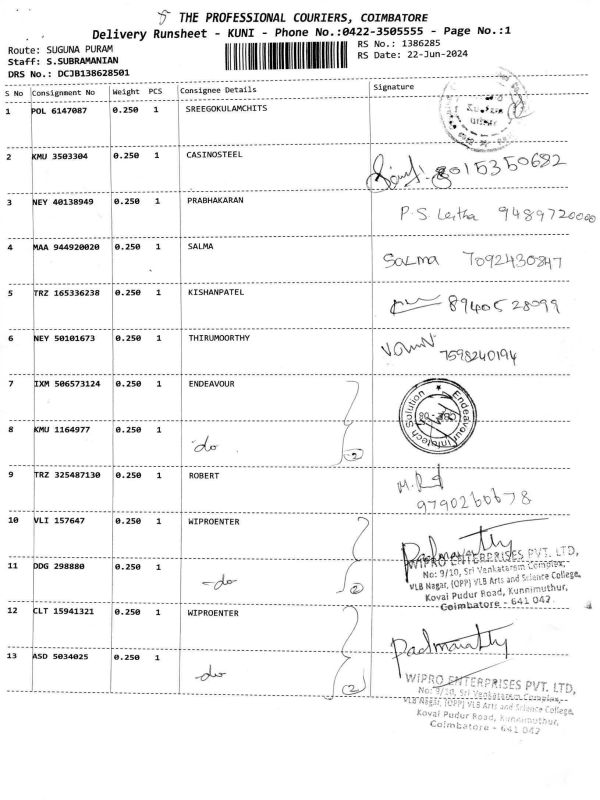 THE PROFESSIONAL COURIERS, COIMBATORE
Delivery Runsheet - KUNI - Phone No.:0422-3505555 - Page No.:1
Route: SUGUNA PURAM
RS No.: 1386285
Staff: S.SUBRAMANIAN
RS Date: 22-Jun-2024
DRS No.: DCJB138628501
S No Consignment No Weight PCS Consignee Details Signature
1 POL 6147087 0.250 1 SREEGOKULAMCHITS
2 KMU 3503304 0.250 1 CASINOSTEEL 8015350682
3 NEY 40138949 0.250 1 PRABHAKARAN P.S Letha 9489720000
4 MAA 944920020 0.250 1 SALMA Salma 7092430847
5 TRZ 165336238 0.250 1 KISHANPATEL 8940528099
6 NEY 50101673 0.250 1 THIRUMOORTHY 7598240194
7 IXM 506573124 0.250 1 ENDEAVOUR Endeavour Infotech Solution
8 KMU 1164977 0.250 1 -do (2)
9 TRZ 325487130 0.250 1 ROBERT 9790260678
10 VLI 157647 0.250 1 WIPROENTER Padmavathy
WIPRO ENTERPRISES PVT. LTD,
No: 9/10, Sri Venkataram Complex,
11 DDG 298880 0.250 1 -do (2)
VLB Nagar, (OPP) VLB Arts and Science College,
Kovai Pudur Road, Kunnimuthur,
Coimbatore - 641 042.
12 CLT 15941321 0.250 1 WIPROENTER Padmavathy
13 ASD 5034025 0.250 1 -do (2)
WIPRO ENTERPRISES PVT. LTD,
No: 9/10, Sri Venkataram Complex,
VLB Nagar, (OPP) VLB Arts and Science College,
Kovai Pudur Road, Kunnimuthur,
Coimbatore - 641 042